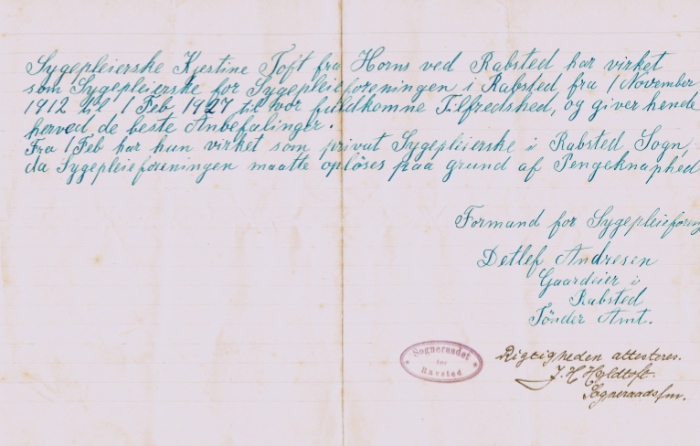 Sygepleierske Kjestine Toft fra Horns ved Rabsted har virket
som Sygepleierske for Sygepleieforeningen i Rabsted, fra 1 November
1912 til 1 Feb 1927 til vor fuldkomne Tilfredshed, og giver hende
herved de beste Anbefalinger.
Fra 1 Feb har hun virket som privat Sygepleierske i Rabsted Sogn,
da Sygepleieforeningen maatte opløses paa grund af Pengeknaphed
Formand for Sygepleieforeng
Detlef Andresen
Gaardeier i
Rabsted
Tønder Amt.
Sogneraadet
for
Ravsted
Rigtigheden attesteres.
J. H. Hyldtoft.
Sogneraadsfm.